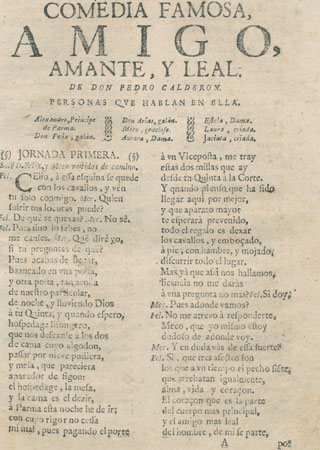 COMEDIA FAMOSA,
AMIGO,
AMANTE, Y LEAL.
DE DON PEDRO CALDERON.
PERSONAS QUE HABLAN EN ELLA.
Alexandro, Principe
de Parma.
Don Felix, galàn.
Don Arias, galàn.
Meco, gracioso.
Aurora, Dama.
Estela, Dama.
Laura, criada.
Jacinta, criada.
(§) JORNADA PRIMERA. (§)
Salē D. Felix, y Meco vestidos de camino.
Fel. CElio, à essa esquina se quede
con los cavallos, y ven
tu solo conmigo. Mec. Quien
sufrir tus locuras puede?
Fel. De què te quexas? Mec. No sè.
Fel. Pues sino lo sabes, no
me canses. Mec. Què dirè yo,
si tu preguntas de què?
Pues acabas de llegar,
en una posta,
y otra posta,
de nuestro particular,
de noche, y lloviendo Dios
à tu Quinta, y quando espero,
hospedage lisongero,
que nos descanse à los dos
de cama cuyo algodon,
passar por nieve pudiera,
y mesa, que pareciera
aparador de figon:
el hospedage, la mesa,
y la cama es el dezir,
à Parma esta noche he de ir;
con cuyo rigor no cessa
mi mal, pues pagando el porte
à vn Viceposta, me tray
estas dos millas que ay
desde tu Quinta à la Corte.
Y quando pienso que ha sido
llegar aqui por mejor,
y que aparato mayor
te esperarà prevenido,
todo el regalo es dexar
los cavallos, y emboçado,
à pie, con hambre, y mojado,
discurrir todo el lugar.
Mas yà que assi nos hallamos,
licencia no me daràs
à vna pregunta no mas? Fel. Si doy.
Mec. Pues adonde vamos?
Fel. No me atrevo à responderte,
Meco, que yo mismo estoy
dudoso de adonde voy.
Mec. Y en duda vàs de essa suerte?
Fel. Si, que tres afectos son
los que à vn tiempo el pecho siēte,
que arrebatan igualmente,
alma, vida, y coraçon.
El coraçon que es la parte
del cuerpo mas principal,
y el amigo mas leal
del hombre, de mi se parte,
A